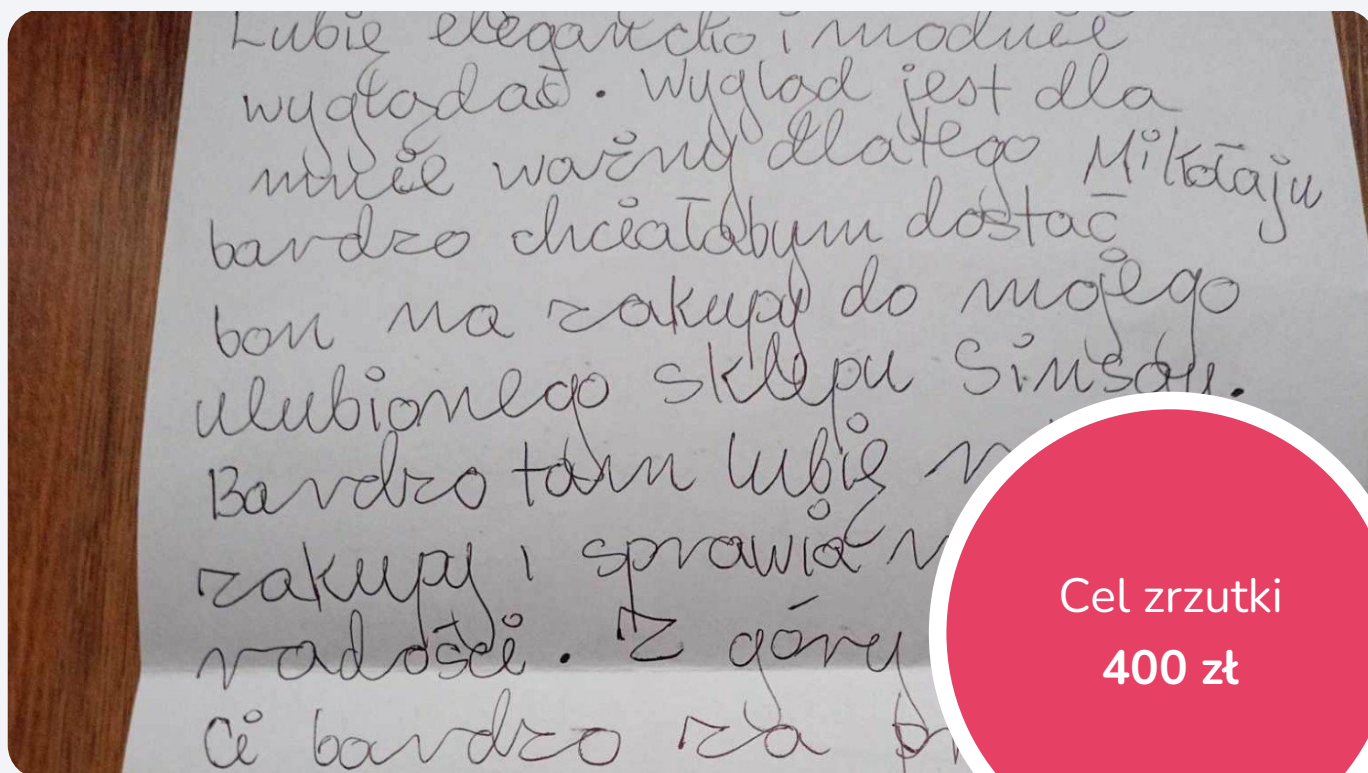 Lubię elegancko i modnie
wyglądać. Wygląd jest dla
mnie ważny dlatego Mikołaju
bardzo chciałabym dostać
bon na zakupy do mojego
ulubionego sklepu Sinsay.
Bardzo tam lubię
zakupy i sprawia
radości. Z góry
Ci bardzo za
Cel zrzutki
400 zł